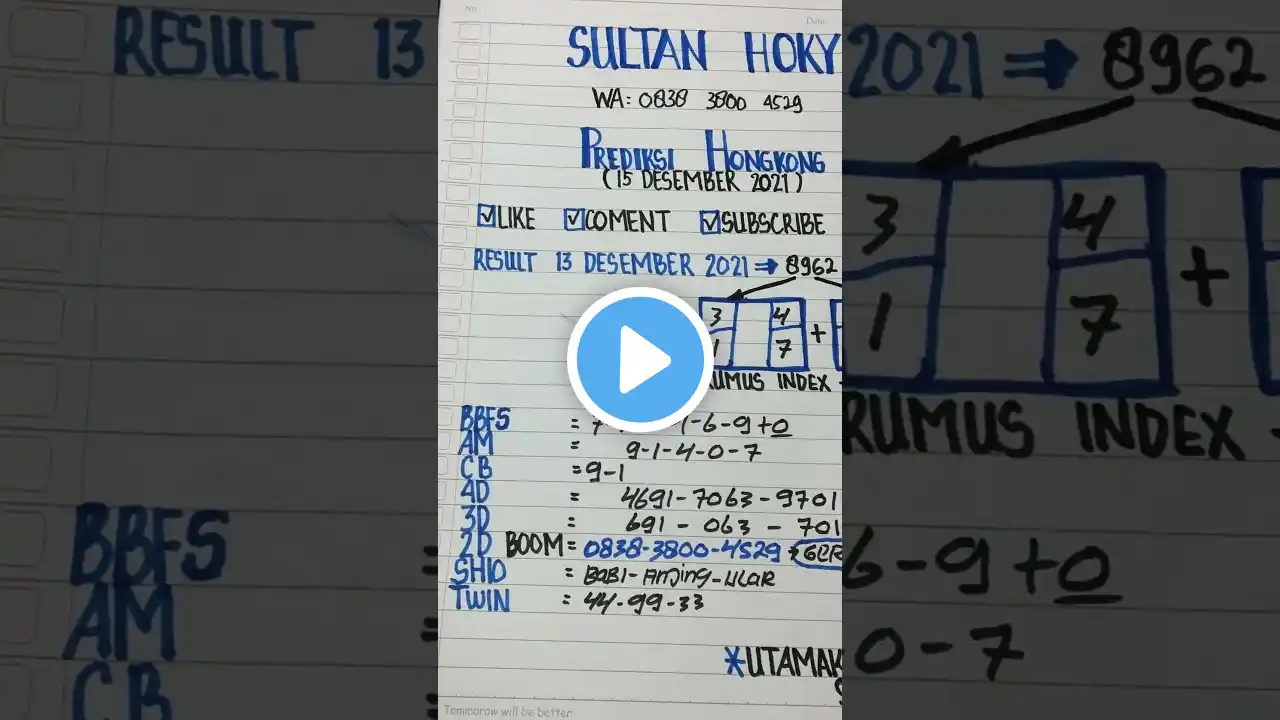 No
Date
SULTAN HOKY
WA: 0838 3800 4529
PREDIKSI HONGKONG
(15 DESEMBER 2021)
LIKE COMENT SUBSCRIBE
RESULT 13 DESEMBER 2021 ⇒ 8962
3 4
1 7 +
RUMUS INDEX
BBFS = 7 1-6-9+0
AM = 9-1-4-0-7
CB = 9-1
4D = 4691-7063-9701
3D = 691 - 063 - 701
2D BOOM = 0838-3800-4529
SHIO = BABI-ANJING-ULAR
TWIN = 44-99-33
*UTAMAK
Tommorow will be better
RESULT 13
2021 ⇒ 8962
3 4
1 7 +
RUMUS INDEX
BBFS =
6-9+0
AM =
0-7
CB